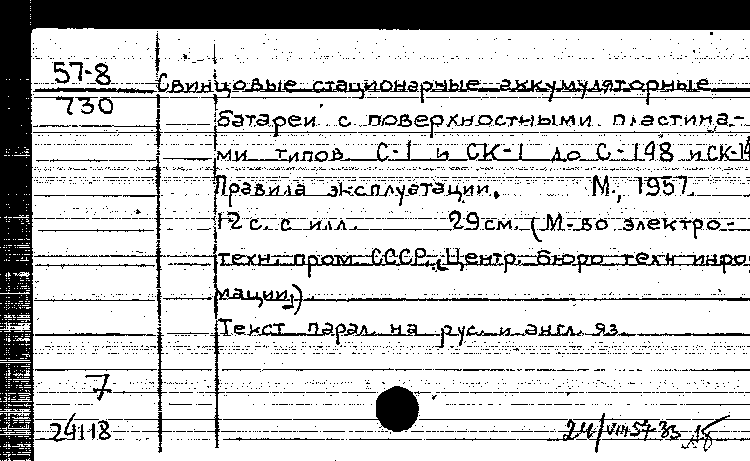 57-8
730
Свинцовые стационарные аккумуляторные
батареи с поверхностными пластина-
ми типов С-1 и СК-1 до С-148 и СК-14
Правила эксплуатации. М., 1957.
12 с. с илл. 29 см. (М-во электро-
техн. пром. СССР. Центр. бюро техн инфо
мации.)
Текст парал. на рус. и англ. яз.
7
24118
24/VIII 57-33